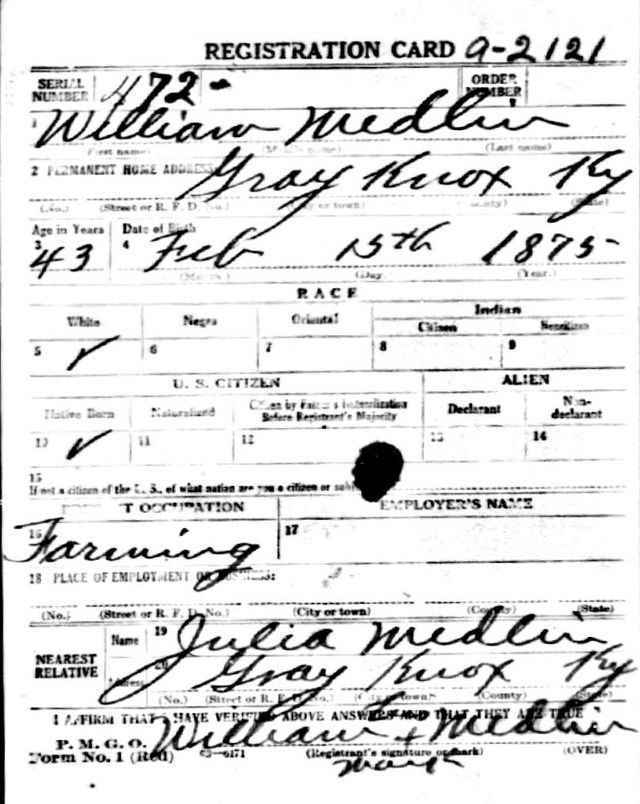 REGISTRATION CARD 9-2121
SERIAL NUMBER 472- ORDER NUMBER
1 William Medlin
(First name) (Middle name) (Last name)
2 PERMANENT HOME ADDRESS: Gray Knox Ky
(No.) (Street or R. F. D. No.) (City or town) (County) (State)
Age in Years Date of Birth
3 43 4 Feb 15th 1875
(Month.) (Day.) (Year.)
RACE
White Negro Oriental Indian
Citizen Noncitizen
5 ✓ 6 7 8 9
U. S. CITIZEN ALIEN
Native Born Naturalized Citizen by Father's Naturalization Before Registrant's Majority Declarant Non-declarant
10 ✓ 11 12 13 14
15
If not a citizen of the U. S., of what nation are you a citizen or subj
T OCCUPATION EMPLOYER'S NAME
16 Farming 17
18 PLACE OF EMPLOYMENT OR BUSINESS:
(No.) (Street or R. F. D. No.) (City or town) (County) (State)
NEAREST RELATIVE
Name 19 Julia Medlin
Address 20 Gray Knox Ky
(No.) (Street or R. F. D. No.) (City or town) (County) (State)
I AFFIRM THAT I HAVE VERIFIED ABOVE ANSWERS AND THAT THEY ARE TRUE
P. M. G. O. William + Medlin
Form No. 1 (Red) 03-6171 (Registrant's signature or mark) (OVER)
mark